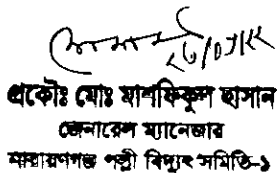 ২৬/০৬/২২
প্রকৌঃ মোঃ মাশফিকুল হাসান
জেনারেল ম্যানেজার
নারায়ণগঞ্জ পল্লী বিদ্যুৎ সমিতি-১